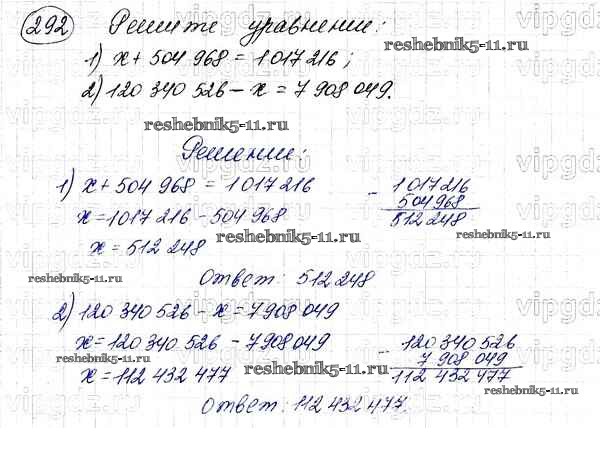 292 Решите уравнении:
1) x + 504 968 = 1 017 216;
2) 120 340 526 - x = 7 908 049.
Решении:
1) x + 504 968 = 1 017 216
x = 1 017 216 - 504 968
x = 512 248
- 1 017 216
504 968
512 248
Ответ: 512 248
2) 120 340 526 - x = 7 908 049
x = 120 340 526 - 7 908 049
x = 112 432 477
- 120 340 526
7 908 049
112 432 477
Ответ: 112 432 477.
reshebnik5-11.ru
reshebnik5-11.ru
reshebnik5-11.ru
reshebnik5-11.ru
reshebnik5-11.ru
reshebnik5-11.ru
reshebnik5-11.ru
reshebnik5-11.ru